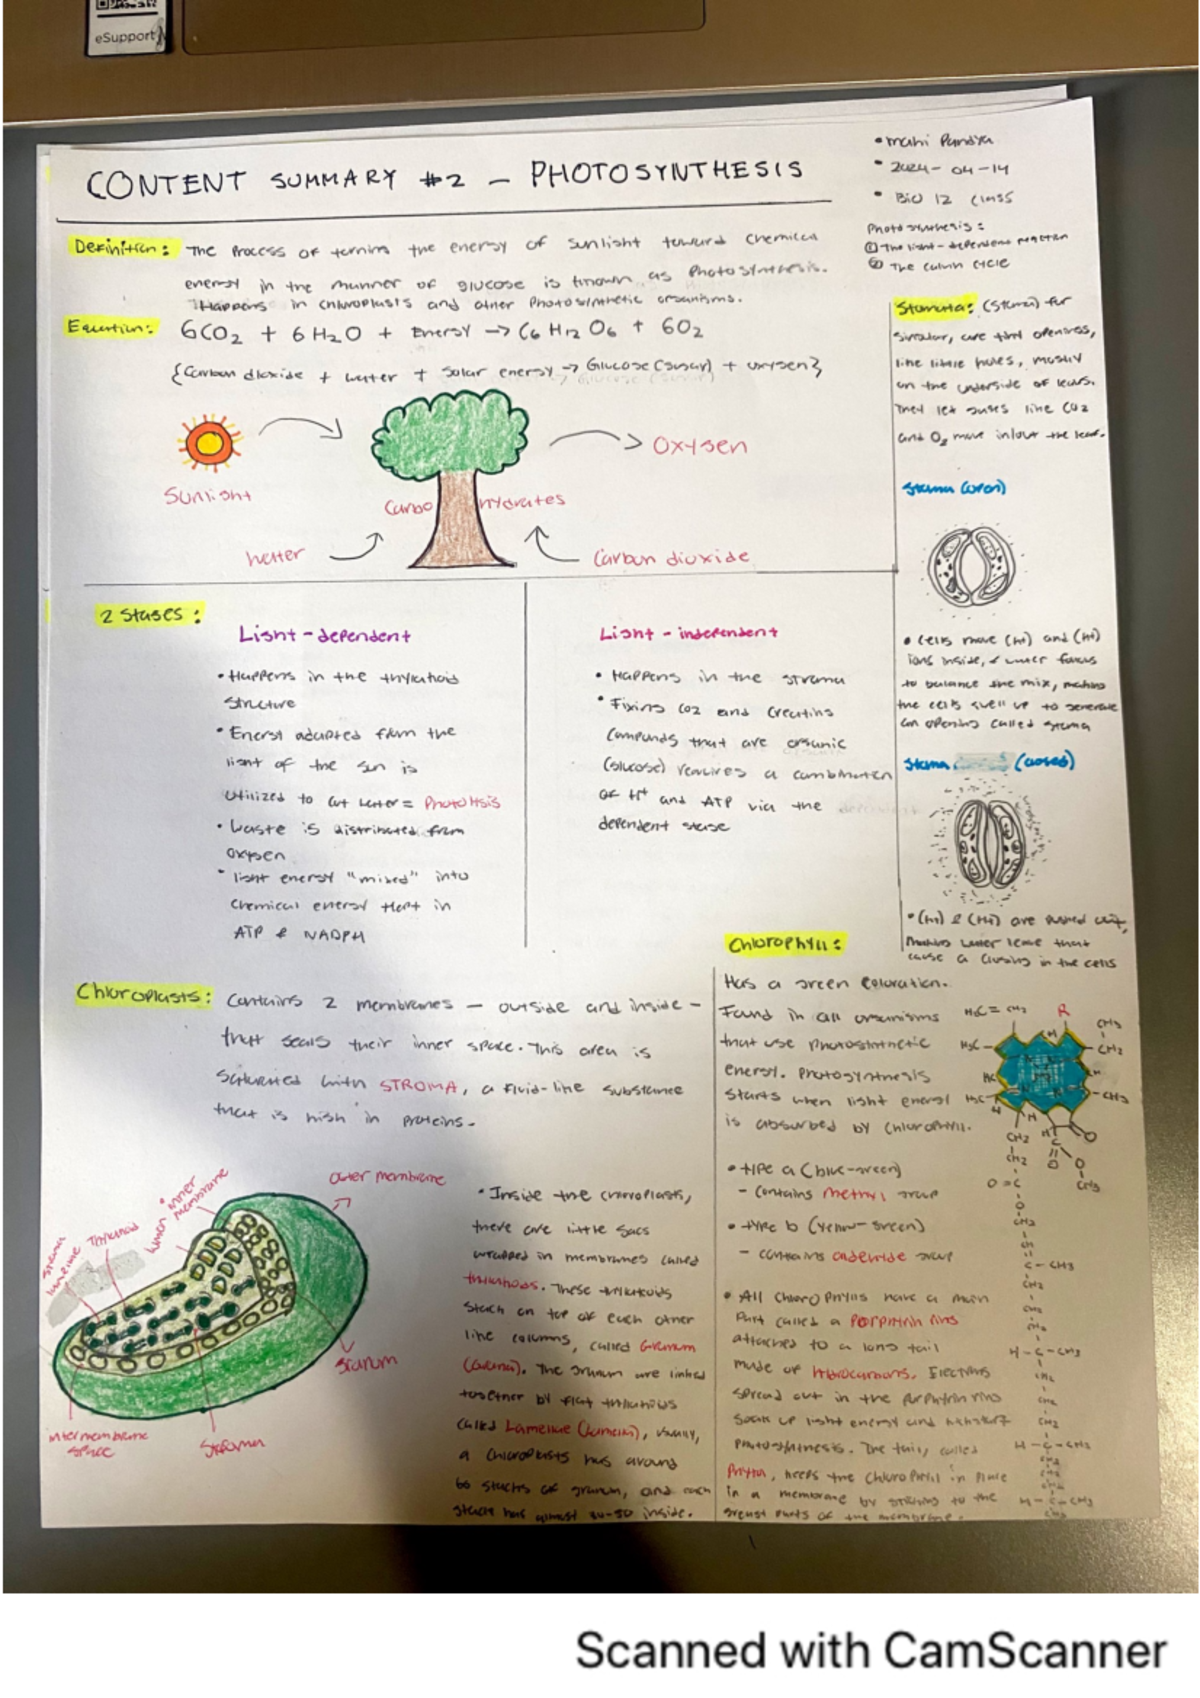 eSupport
CONTENT SUMMARY #2 - PHOTOSYNTHESIS
• Mahi Pandya
• 2024-04-14
• BIO 12 Class
Photosynthesis:
① The light-dependent reaction
② The Calvin Cycle
Definition: The Process of turning the energy of sunlight toward chemical
energy in the manner of glucose is known as Photosynthesis.
Happens in chloroplasts and other Photosynthetic organisms.
Equation: 6CO2 + 6H2O + Energy → C6H12O6 + 6O2
{Carbon dioxide + water + solar energy → Glucose (sugar) + oxygen}
Sunlight
Carbohydrates
Oxygen
Water
Carbon dioxide
Stomata: (Stoma) for
singular, are tiny openness,
like little holes, mostly
on the underside of leaves.
They let gases like CO2
and O2 move in/out the leaf.
Stoma (open)
• Cells move (H+) and (K+)
ions inside, & water follows
to balance the mix, making
the cells swell up to generate
an opening called stoma
Stoma (closed)
are pushed out,
Making water leave that
cause a closing in the cells
2 Stages:
Light-dependent
• Happens in the thylakoid
structure
• Energy adapted from the
light of the sun is
utilized to cut water = Photolysis
• Waste is distributed from
oxygen
• light energy "mixed" into
chemical energy kept in
ATP & NADPH
Light-independent
• Happens in the stroma
• Fixing CO2 and creating
compounds that are organic
(glucose) requires a combination
of H+ and ATP via the
dependent stage
Chloroplasts: Contains 2 membranes - outside and inside -
that seals their inner space. This area is
saturated with STROMA, a fluid-like substance
that is high in proteins.
stroma
lamellae
Thylakoid
lumen
inner
membrane
outer membrane
Granum
intermembrane
space
Stroma
• Inside the chloroplasts,
there are little sacs
wrapped in membranes called
thylakoids. These thylakoids
stack on top of each other
like columns, called Granum
(Grana). The granum are linked
together by flat thylakoids
called Lamellae (lumen), usually,
a chloroplasts has around
60 stacks of granum, and each
stack has almost 30-50 inside.
Chlorophyll:
Has a green coloration.
Found in all organisms
that use photosynthetic
energy. Photosynthesis
starts when light energy
is absorbed by chlorophyll.
• type a (blue-green)
- contains methyl group
• type b (yellow-green)
- contains aldehyde group
• All chlorophylls have a main
part called a Porphyrin ring
attached to a long tail
made of hydrocarbons. Electrons
spread out in the porphyrin ring
soak up light energy and kickstart
photosynthesis. The tail, called
Phytol, keeps the chlorophyll in place
in a membrane by sticking to the
greasy parts of the membrane.
H2C = CH2
R
CH3
H3C
CH2
HC
H3C
CH3
H
H
CH2
CH2
O=C
O
CH2
CH
C-CH3
CH2
C
O
O
CH3
H-C-CH3
CH2
H-C-CH3
H-C-CH3
CH3
Scanned with CamScanner